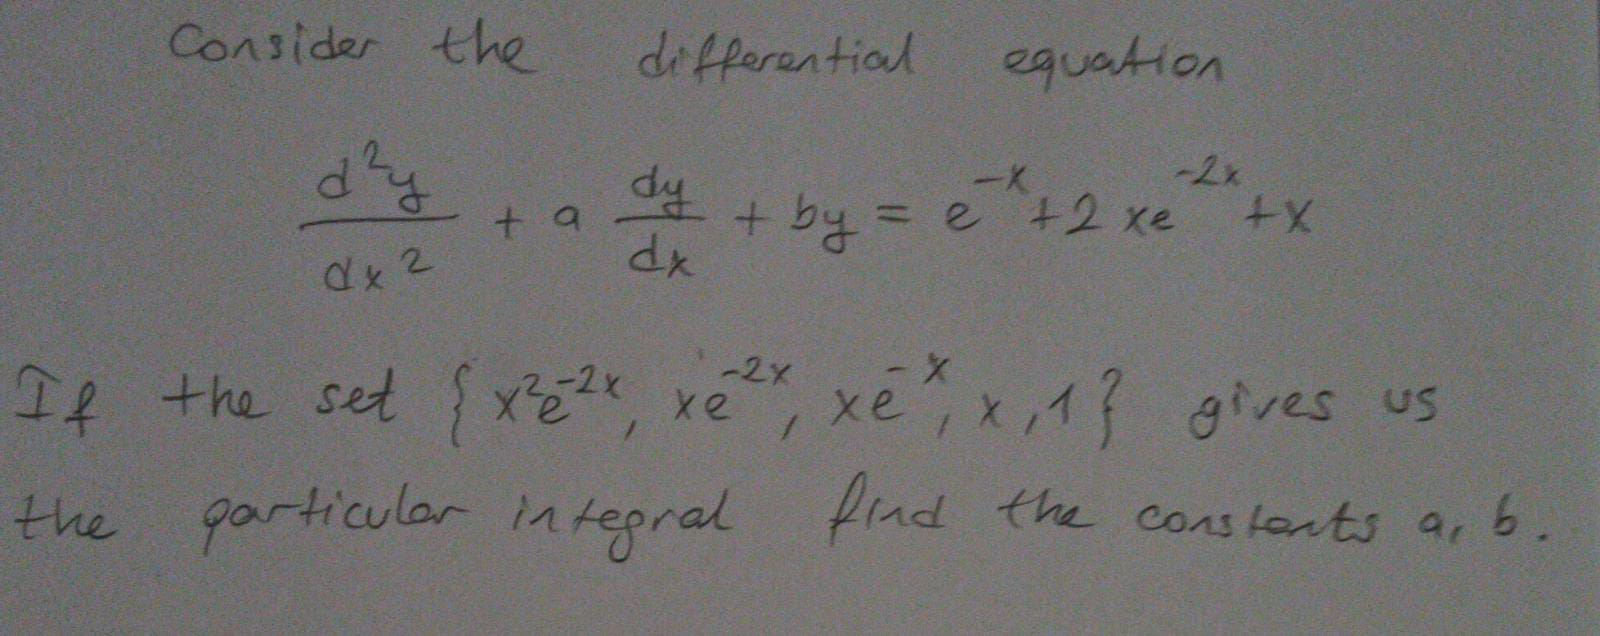 Consider the differential equation
d²y/dx² + a dy/dx + by = e^-x + 2xe^-2x + x
If the set {x²e^-2x, xe^-2x, xe^-x, x, 1} gives us
the particular integral find the constants a, b.